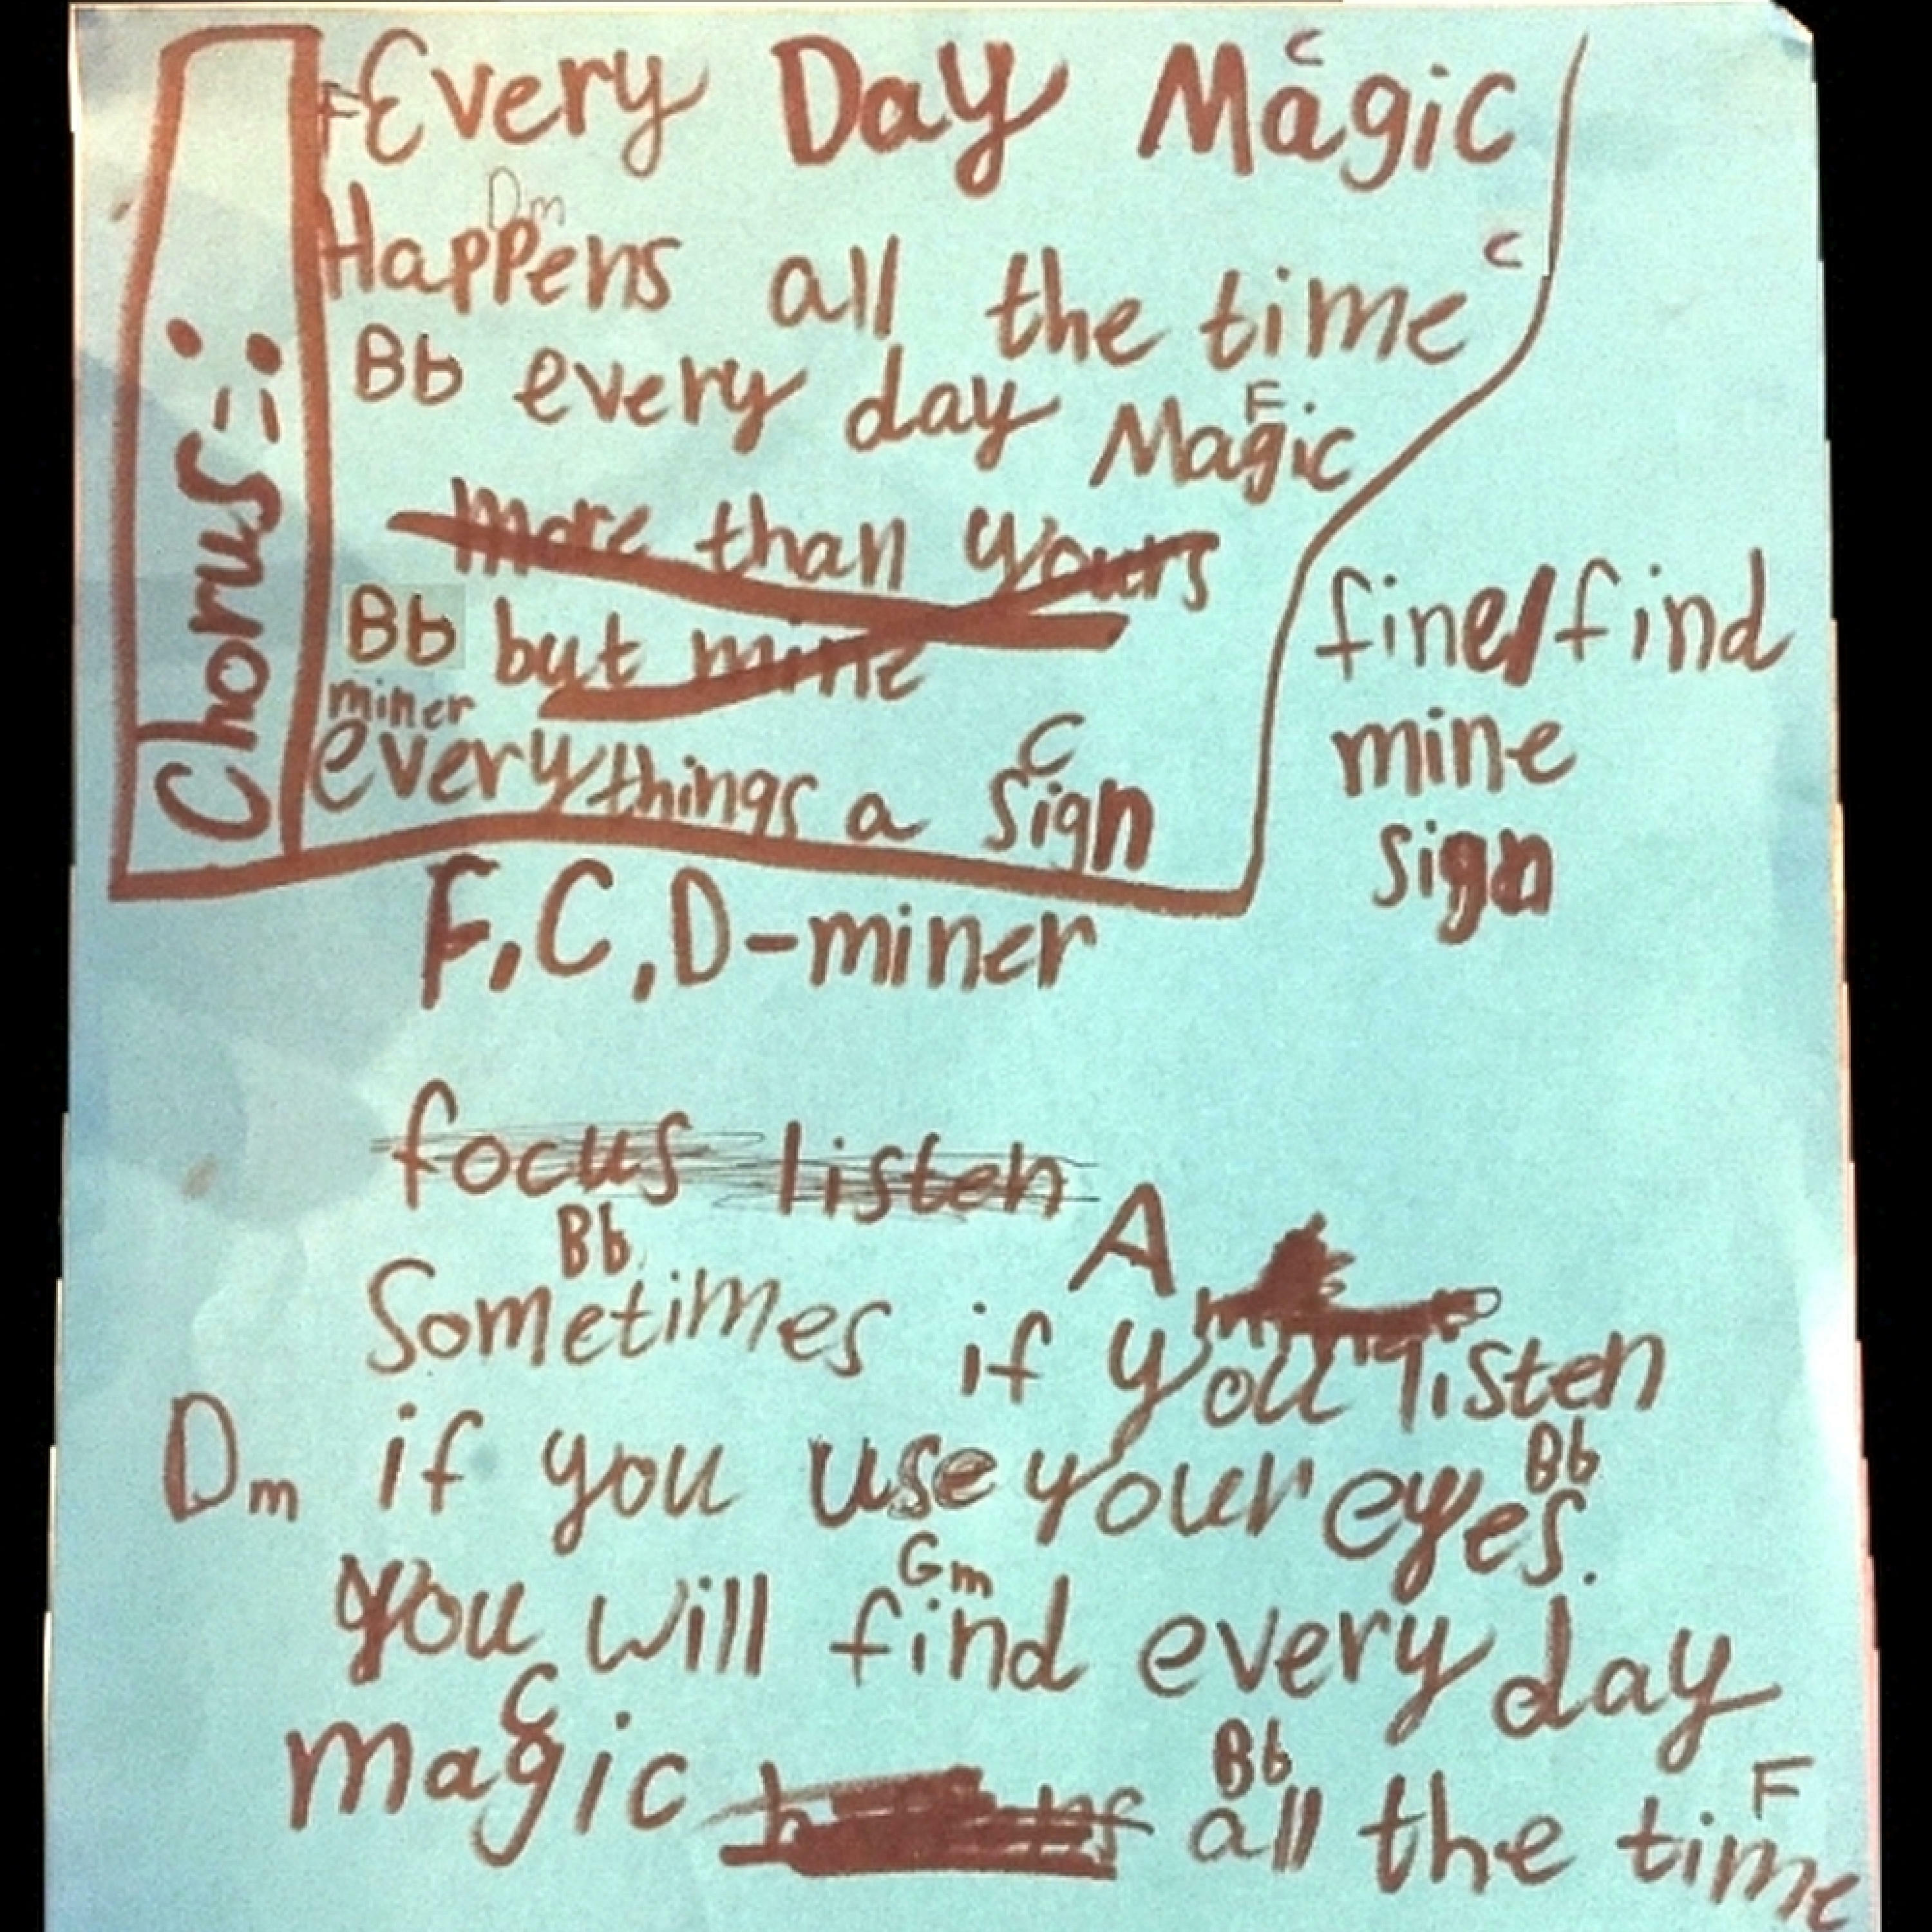 Chorus:
C
F Every Day Magic
Dm
Happens all the time C
Bb every day Magic
F
more than yours
Bb but mine
miner
everythings a sign
C
fine/find
mine
sign
F, C, D-miner
focus listen
Bb A
Sometimes if you listen
Dm if you use your eyes.
Bb
Gm
you will find every day
C
magic all the time
Bb F